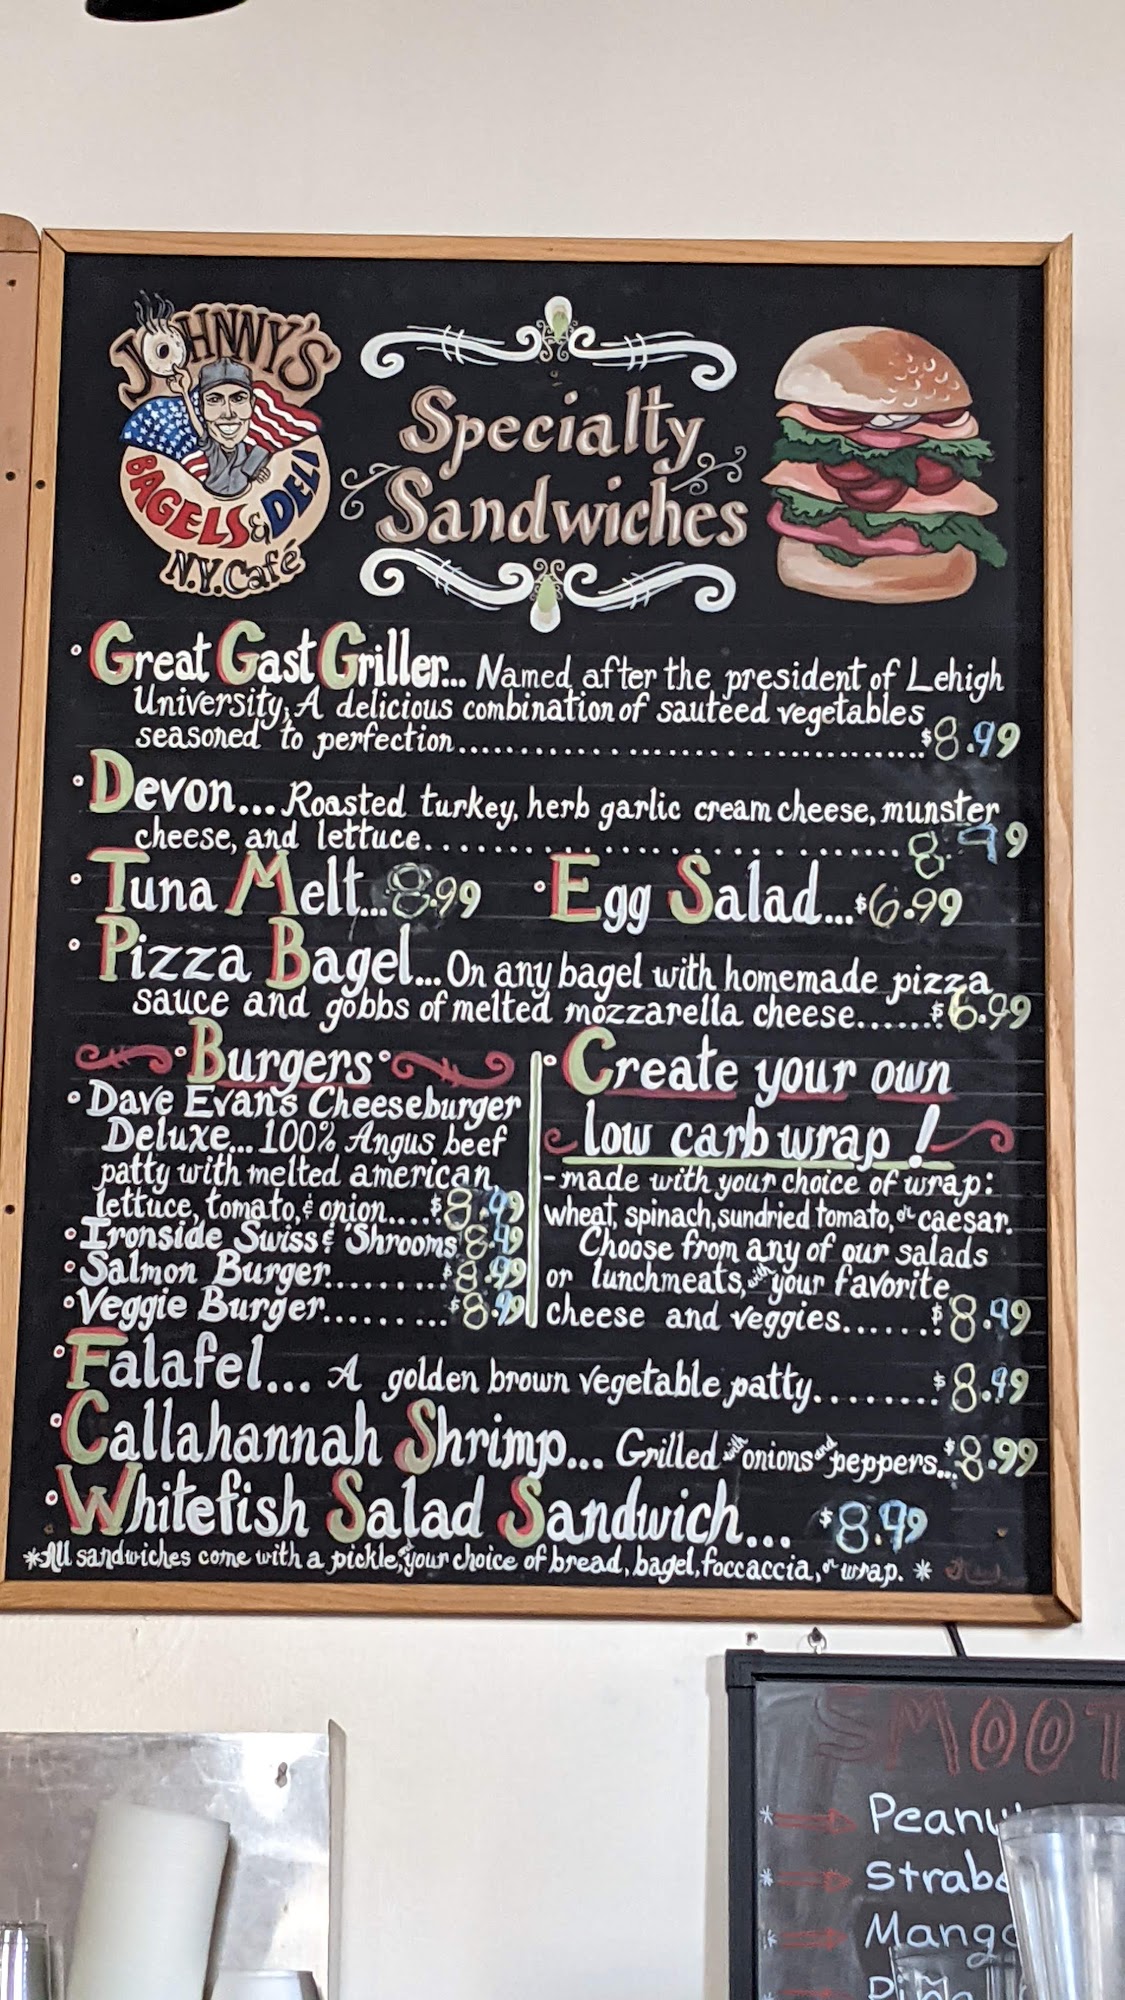 JOHNNY'S
BAGELS & DELI
N.Y. Café
Specialty
Sandwiches
• Great Gast Griller... Named after the president of Lehigh
University, A delicious combination of sauteed vegetables
seasoned to perfection.......................................$8.99
• Devon... Roasted turkey, herb garlic cream cheese, munster
cheese, and lettuce.......................................8.99
• Tuna Melt...8.99 • Egg Salad...$6.99
• Pizza Bagel...On any bagel with homemade pizza
sauce and gobbs of melted mozzarella cheese......$6.99
• Burgers •
• Dave Evan's Cheeseburger
Deluxe... 100% Angus beef
patty with melted american,
lettuce, tomato, & onion....$8.99
• Ironside Swiss & Shrooms 8.49
• Salmon Burger.........$8.99
• Veggie Burger.........$8.99
• Create your own
low carb wrap!
- made with your choice of wrap:
wheat, spinach, sundried tomato, or caesar.
Choose from any of our salads
or lunchmeats, with your favorite
cheese and veggies......$8.49
• Falafel... A golden brown vegetable patty........$8.49
• Callahannah Shrimp... Grilled with onions and peppers...$8.99
• Whitefish Salad Sandwich... $8.49
*All sandwiches come with a pickle, and your choice of bread, bagel, foccaccia, or wrap. *
SMOOT
* Peanu
* Strabe
* Mango